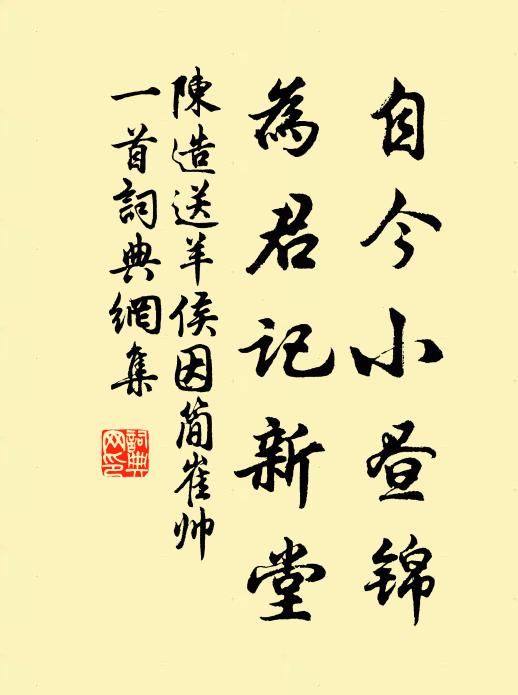 自今小昼锦
為君記新堂
陳造送羊侯因簡崔帅
一首詞典網集
詞典网印